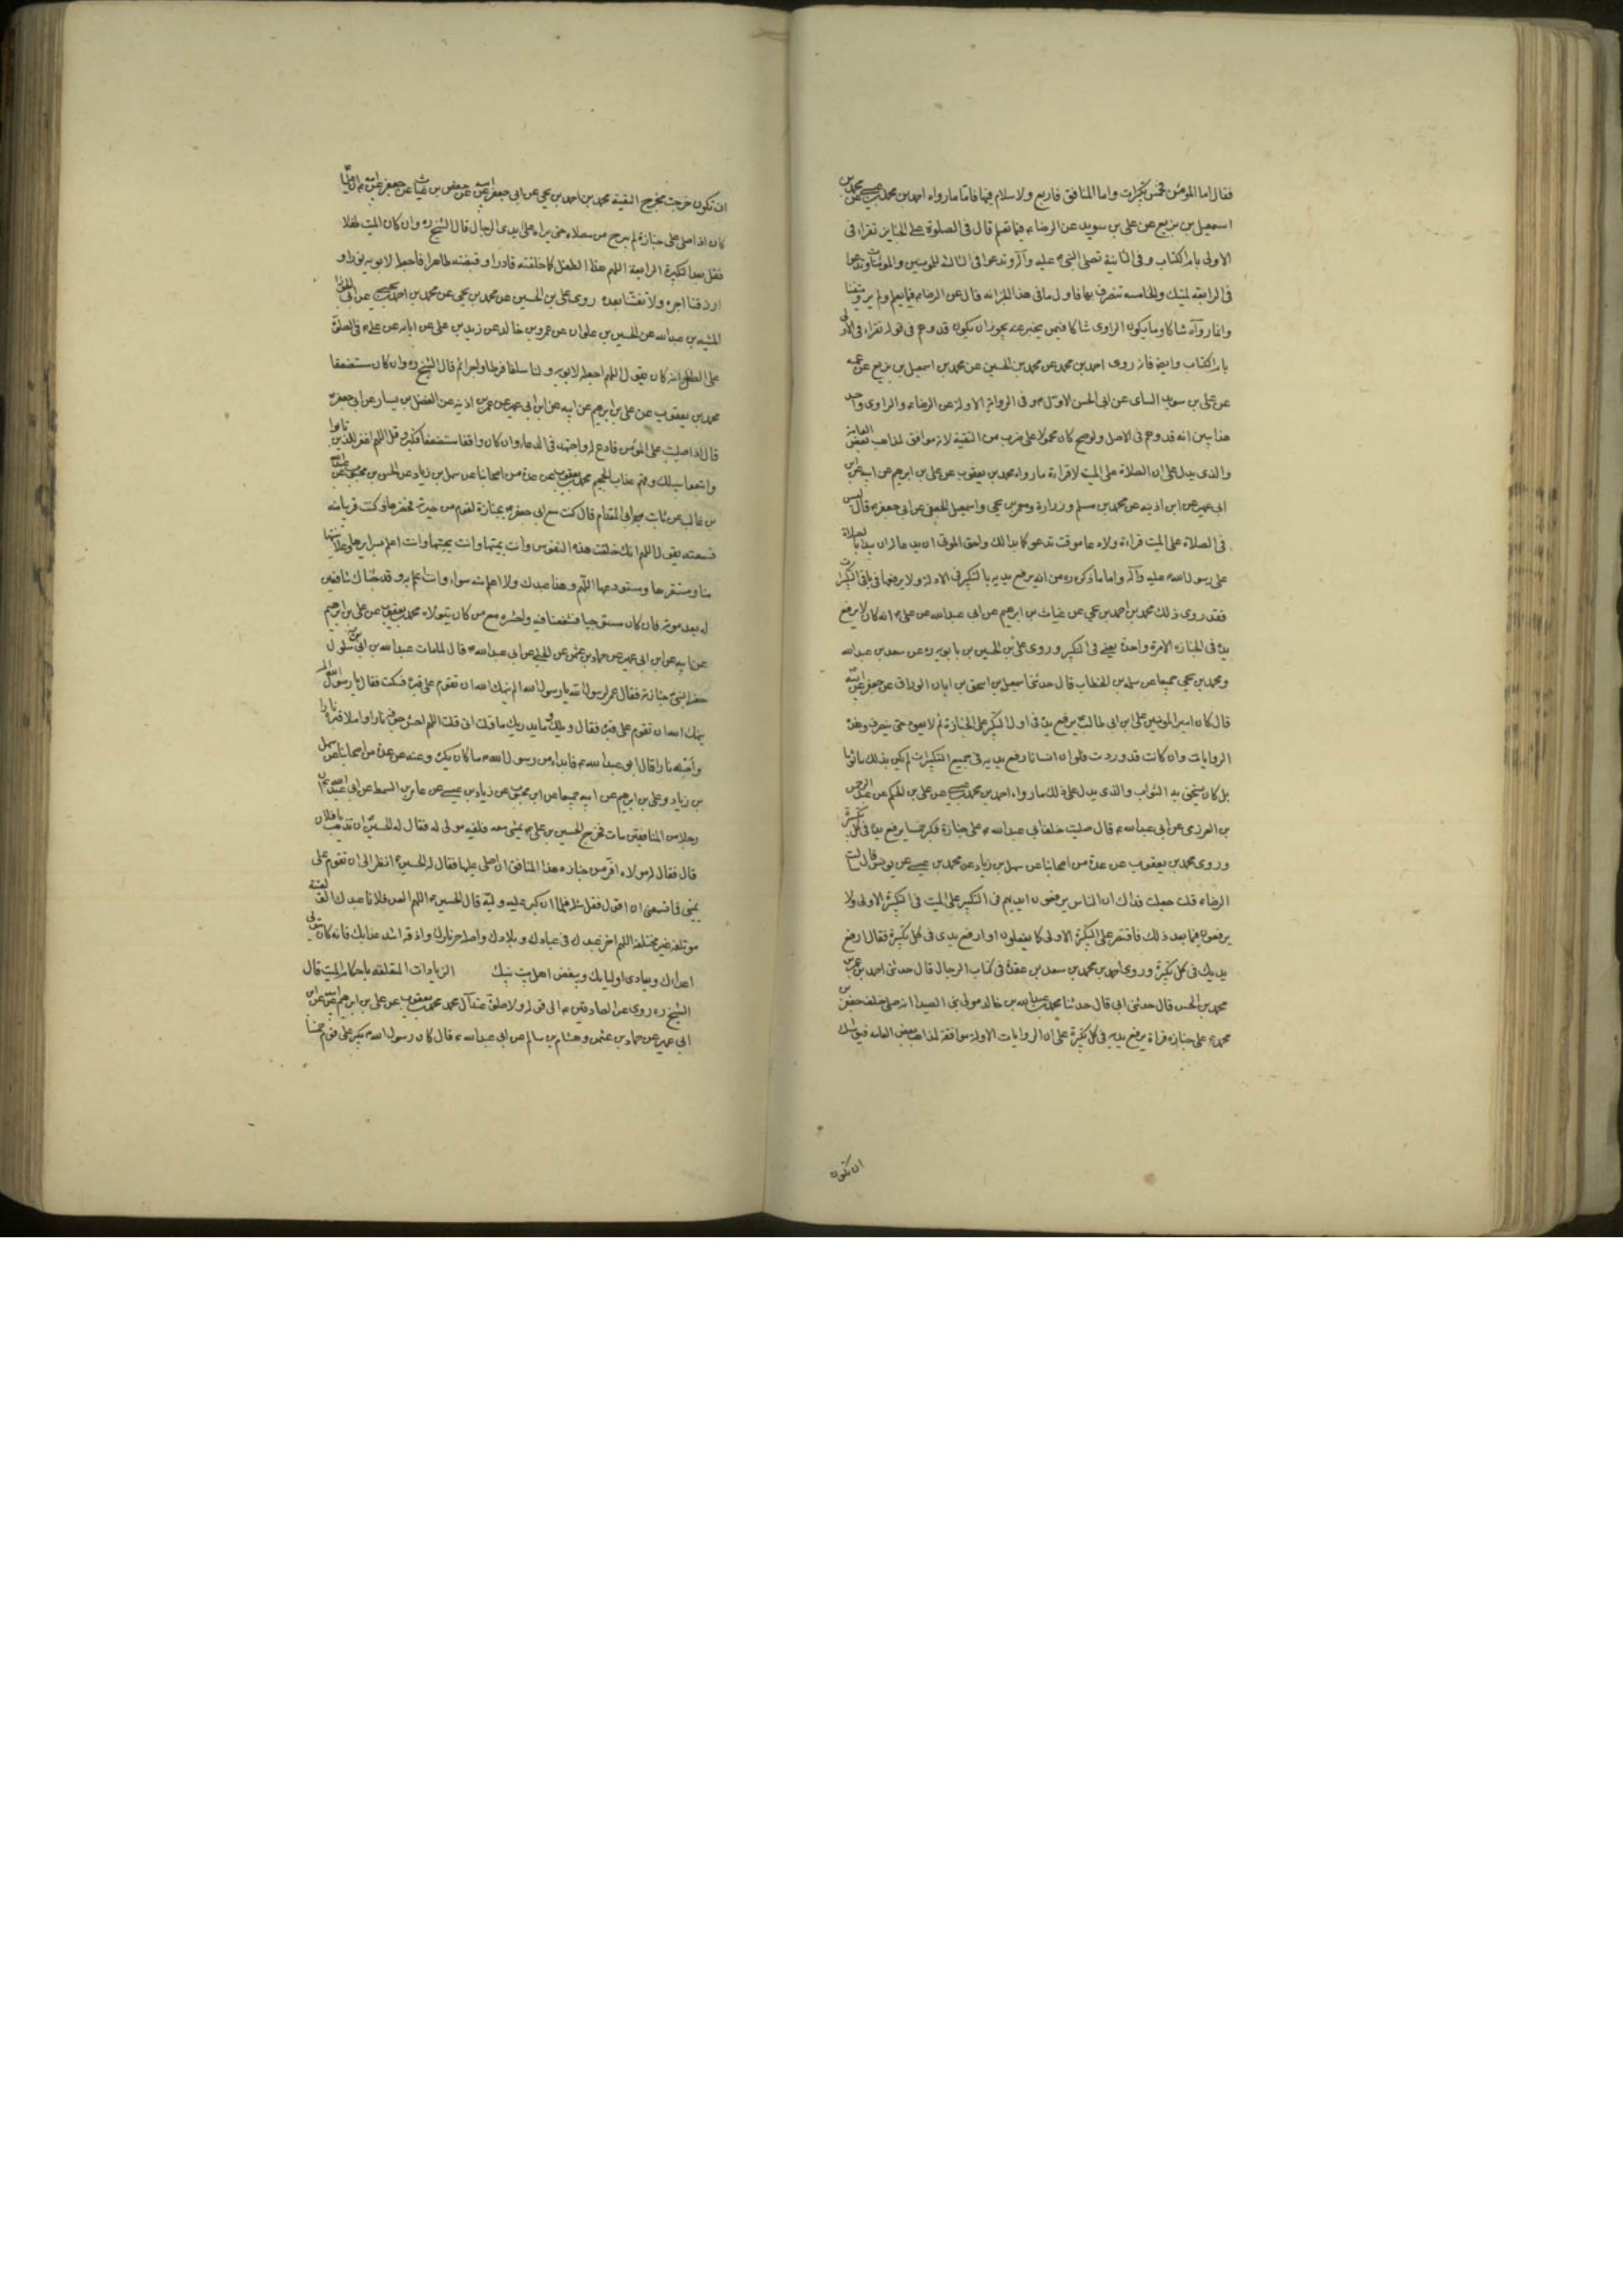 فقال اما المؤمن فخمس تكبيرات واما المنافق فاربع ولا سلام فيها فاما ما رواه احمد بن محمد بن عيسى عن محمد بن
اسمعيل بن بزيع عن على بن سويد عن الرضا ع فيما نعلم قال فى الصلوة على الجنايز تقراء فى
الاولى بام الكتاب وفى الثانية تصلى على النبى ص عليه وآله وتدعو فى الثالثة للمومنين والمومنات وتدعوا
فى الرابعة لميتك والخامسه تنصرف بها فاول ما فى هذا الخبر انه قال عن الرضا ع فيما يعلم ولم يروه متيقنا
وانما رواه شاكا وما يكون الراوى شاكا فيمن يخبر عنه يجوز ان يكون قد وهم فى قوله تقراء فى الاولى
بام الكتاب وايضا فانه روى احمد بن محمد عن محمد بن الحسين عن محمد بن اسمعيل بن بزيع عن عمه
عن على بن سويد السائى عن ابى الحسن الاول ع وفى الرواية الاولة عن الرضا ع والراوى واحد
هذا يبين انه قد وهم فى الاصل ولو صح كان محمولا على ضرب من التقية لانه موافق لمذاهب بعض العامة
والذى يدل على ان الصلاة على الميت لا قراءة ما رواه محمد بن يعقوب عن على بن ابرهيم عن ابيه عن ابن
ابى عمير عن ابن اذينه عن محمد بن مسلم وزرارة ومعمر بن يحيى واسمعيل الجعفى عن ابى جعفر ع قال ليس
فى الصلاة على الميت قراءة ولا دعا موقت تدعو كما بدا لك واحق الموتى ان يدعا له ان يبدأ بالصلاة
على رسول الله ص عليه وآله واما ما ذكره ره من انه يرفع يديه بالتكبير فى الاولة ولا يرفعها فى باقى التكبيرات
فقد روى ذلك محمد بن احمد بن يحيى عن غياث بن ابرهيم عن ابى عبد الله عن على ع انه كان لا يرفع
يده فى الجنازه الا مرة واحدة يعنى فى التكبير وروى على بن الحسين بن بابويه ره عن سعد بن عبد الله
ومحمد بن يحيى جميعا عن سلمه بن الخطاب قال حدثنى اسمعيل بن اسحق بن ابان الوراق عن جعفر عن ابيه
قال كان امير المومنين على ابن ابى طالب ع يرفع يده فى اول التكبير على الجنازة ثم لا يعود حتى ينصرف وهذه
الروايات وان كانت قد وردت فلو ان انسانا رفع يديه فى جميع التكبيرات لم يكن بذلك مأثوما
بل كان يستحق به الثواب والذى يدل على ذلك ما رواه احمد بن محمد بن عيسى عن على بن الحكم عن عبد الرحمن
بن العرزمى عن ابى عبد الله ع قال صليت خلف ابى عبد الله ع على جنازة فكبر خمسا يرفع يده فى كل تكبيرة
وروى محمد بن يعقوب عن عدة من اصحابنا عن سهل بن زياد عن محمد بن عيسى عن يونس قال سالت
الرضا ع قلت جعلت فداك ان الناس يرفعون ايديهم فى التكبير على الميت فى التكبيرة الاولى ولا
يرفعون فيما بعد ذلك فاقتصر على التكبيرة الاولى كما يفعلون او ارفع يدى فى كل تكبيرة فقال ارفع
يديك فى كل تكبيرة وروى احمد بن محمد بن سعد بن عقدة فى كتاب الرجال قال حدثنى احمد بن عمر بن
محمد بن الحسن قال حدثنى ابى قال حدثنا محمد بن عبد الله بن خالد مولى بنى الصيدا انه صلى خلف جعفر بن
محمد ع على جنازه فراه يرفع يديه فى كل تكبيرة على ان الروايات الاولة موافقة لمذاهب بعض العامه فيوشك
ان تكون
ان تكون خرجت مخرج التقية محمد بن احمد بن يحيى عن ابى جعفر عن ابيه عن حفص بن غياث عن جعفر عن ابيه ع ان عليا
كان اذا صلى على جنازة لم يبرح من مصلاه حتى يراه على ايدى الرجال قال الشيخ ره وان كان الميت طفلا
فقل بعد التكبيرة الرابعة اللهم هذا الطفل كما خلقته قادرا وقبضته طاهرا فاجعله لابويه نورا و
ارزقنا اجره ولا تفتنا بعده روى على بن الحسين عن محمد بن يحيى عن محمد بن احمد بن يحيى عن ابى الجوزا
المنبه بن عبد الله عن الحسين بن علوان عن عمرو بن خالد عن زيد بن على عن ابائه عن على ع فى الصلوة
على الطفل انه كان يقول اللهم اجعله لابويه ولنا سلفا وفرطا واجرا ثم قال الشيخ ره وان كان مستضعفا
محمد بن يعقوب عن على بن ابرهيم عن ابيه عن ابن ابى عمير عن عمر بن اذينه عن الفضيل بن يسار عن ابى جعفر ع
قال اذا صليت على المؤمن فادع له واجتهد فى الدعاء وان كان واقفا مستضعفا فكبر وقل اللهم اغفر للذين تابوا
واتبعوا سبيلك وقهم عذاب الجحيم محمد بن يعقوب عن عدة من اصحابنا عن سهل بن زياد عن الحسن بن محبوب عن عبد الله
بن غالب عن ثابت ابى المقدام قال كنت مع ابى جعفر ع بجنازة لقوم من جيرته فحضرها وكنت قريبا منه
فسمعته يقول اللهم انك خلقت هذه النفوس وانت تميتها وانت تحييها وانت اعلم بسرايرها وعلانيتها
منا ومستقرها ومستودعها اللهم وهذا عبدك ولا اعلم منه سوءا وانت اعلم به وقد جئناك شافعين
له بعد موته فان كان مستوجبا فشفعنا فيه واحشره مع من كان يتولاه محمد بن يعقوب عن على بن ابرهيم
عن ابيه عن ابن ابى عمير عن حماد بن عثمن عن الحلبى عن ابى عبد الله ع قال لما مات عبد الله بن ابى بن سلول
حضر النبى ص جنازته فقال عمر لرسول الله يا رسول الله الم ينهك الله ان تقوم على قبره فسكت فقال يا رسول الله الم
ينهك الله ان تقوم على قبره فقال ويلك وما يدريك ما قلت انى قلت اللهم احش جوفه نارا واملا قبره نارا
واصله نارا قال ابو عبد الله ع فابداء من رسول الله ص ما كان يكره وعنه عن عدة من اصحابنا عن سهل
بن زياد وعلى بن ابرهيم عن ابيه جميعا عن ابن محبوب عن زياد بن عيسى عن عامر بن السمط عن ابى عبد الله ع ان
رجلا من المنافقين مات فخرج الحسين بن على ع يمشى معه فلقيه مولى له فقال له الحسين ع اين تذهب يا فلان
قال فقال له مولاه افر من جنازه هذا المنافق ان اصلى عليها فقال له الحسين ع انظر الى ان تقوم على
يمينى فما تسمعنى ان اقول فقل مثله فلما ان كبر عليه وليه قال الحسين ع اللهم العن فلانا عبدك الف لعنة
موتلفه غير مختلفة اللهم اخز عبدك فى عبادك وبلادك واصله حر نارك واذقه اشد عذابك فانه كان يتولى
اعداءك ويعادى اولياءك ويبغض اهل بيت نبيك الزيادات المتعلقه باحكام الميت قال
الشيخ ره روى عن الصادقين ع الى قوله ولا صلوة عند آل محمد محمد بن يعقوب عن على بن ابرهيم عن ابيه عن ابن
ابى عمير عن حماد بن عثمن وهشام بن سالم عن ابى عبد الله ع قال كان رسول الله ص يكبر على قوم خمسا